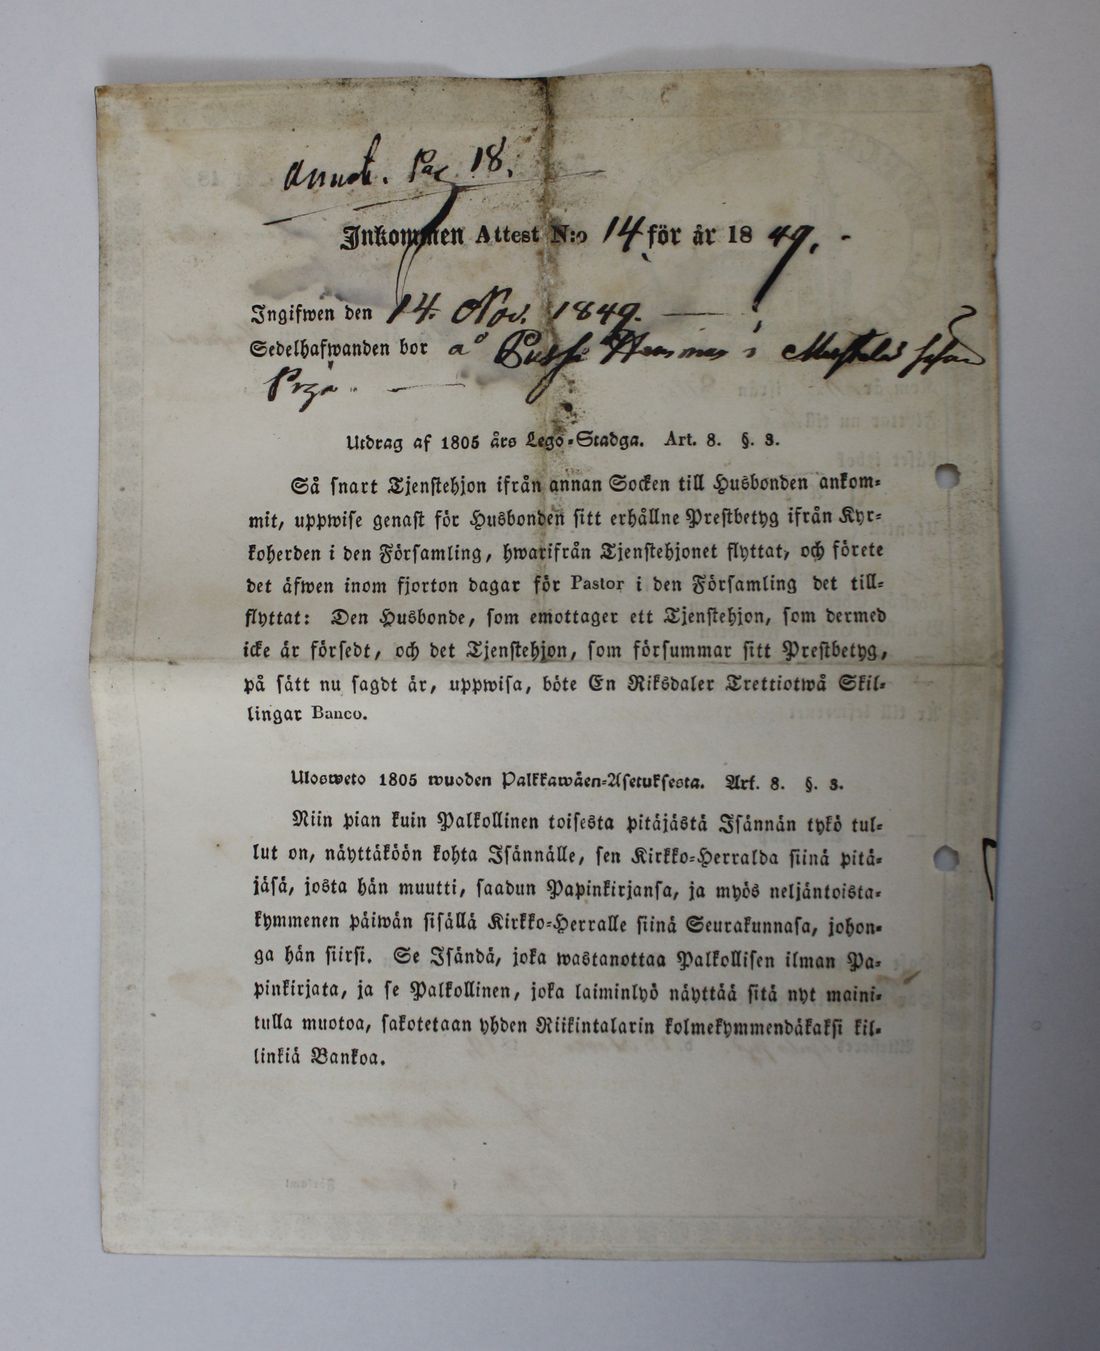 Pag 18.
Inkommen Attest N:o 14 för år 1849.
Ingifwen den 14. Nov. 1849.
Sedelhafwanden bor å
Utdrag af 1805 års Lego-Stadga. Art. 8. §. 3.
Så snart Tjenstehjon ifrån annan Socken till Husbonden ankom-
mit, uppwise genast för Husbonden sitt erhållne Prestbetyg ifrån Kyr-
koherden i den Församling, hwarifrån Tjenstehjonet flyttat, och förete
det äfwen inom fjorton dagar för Pastor i den Församling det till-
flyttat: Den Husbonde, som emottager ett Tjenstehjon, som dermed
icke är försedt, och det Tjenstehjon, som försummar sitt Prestbetyg,
på sätt nu sagdt är, uppwisa, böte En Riksdaler Trettiotwå Skil-
lingar Banco.
Ulosweto 1805 wuoden Palkkawäen-Asetuksesta. Art. 8. §. 3.
Niin pian kuin Palkollinen toisesta pitäjästä Isännän tykö tul-
lut on, näyttäköön kohta Isännälle, sen Kirkko-Herralda siinä pitä-
jäsä, josta hän muutti, saadun Papinkirjansa, ja myös neljäntoista-
kymmenen päiwän sisällä Kirkko-Herralle siinä Seurakunnasa, johon-
ga hän siirsi. Se Isändä, joka wastanottaa Palkollisen ilman Pa-
pinkirjata, ja se Palkollinen, joka laiminlyö näyttää sitä nyt maini-
tulla muotoa, sakotetaan yhden Riikintalarin kolmekymmendäkaksi kil-
linkiä Bankoa.